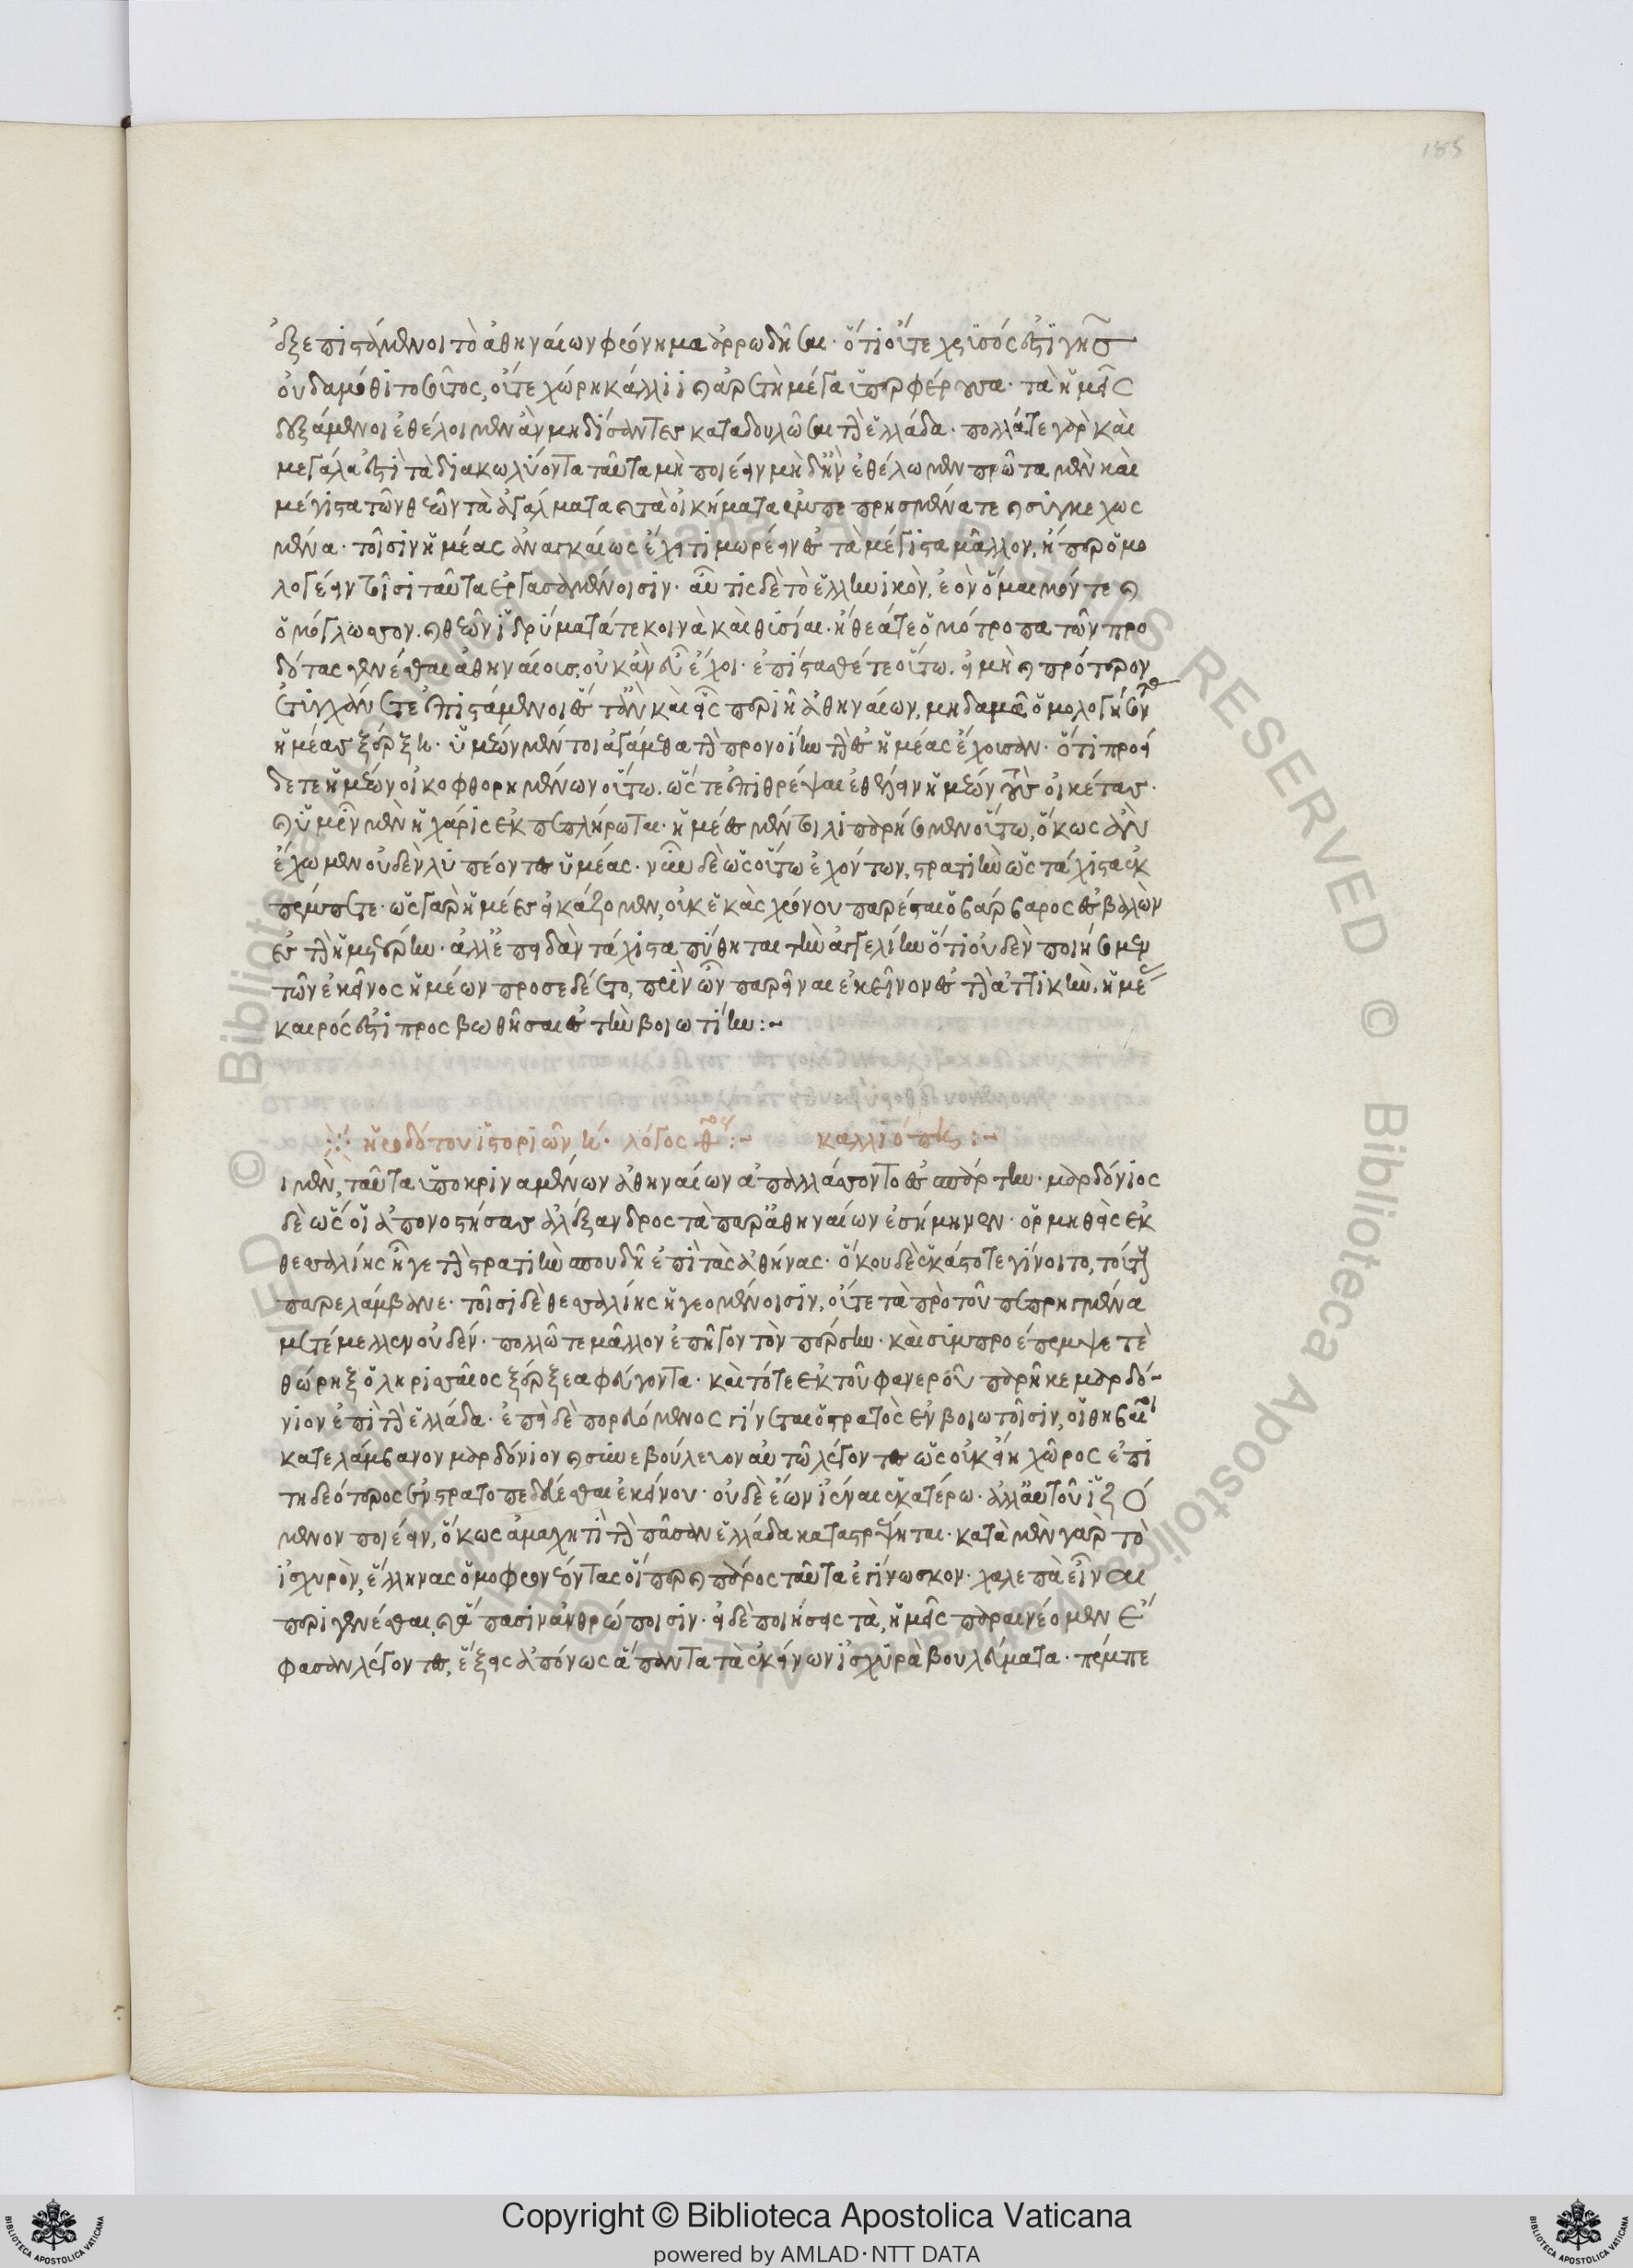 ἐξεπιστάμενοι τὸ ἀθηναίων φρόνημα ἀρρωδῆσαι· ὅτι οὔτε χρυσός ἐστι γῆς
οὐδαμόθι τοσοῦτος, οὔτε χώρη κάλλεϊ καὶ ἀρετῇ μέγα ὑπερφέρουσα· τὰ ἡμεῖς
δεξάμενοι ἐθέλοιμεν ἂν μηδίσαντες καταδουλῶσαι τὴν ἑλλάδα· πολλά τε γὰρ καὶ
μεγάλα ἐστὶ τὰ διακωλύοντα ταῦτα μὴ ποιέειν μὴ δ' ἢν ἐθέλωμεν πρῶτα μὲν καὶ
μέγιστα τῶν θεῶν τὰ ἀγάλματα καὶ τὰ οἰκήματα ἐμπεπρησμένα τε καὶ συγκεχωσ
μένα· τοῖσιν ἡμέας ἀναγκαίως ἔχει τιμωρέειν ἐς τὰ μέγιστα μᾶλλον, ἤπερ ὁμο
λογέειν τοῖσι ταῦτα ἐργασαμένοισιν· αὖτις δὲ τὸ ἑλληνικὸν, ἐὸν ὅμαιμόν τε καὶ
ὁμόγλωσσον. καὶ θεῶν ἱδρύματά τε κοινὰ καὶ θυσίαι· ἤθεά τε ὁμότροπα τῶν προ
δότας γενέσθαι ἀθηναίους, οὐκ ἂν εὖ ἔχοι· ἐπίστασθέ τε οὕτω. εἰ μὴ καὶ πρότερον
ἐτυγχάνετε ἐπιστάμενοι ἔς τ' ἂν καὶ εἷς περιῇ ἀθηναίων, μηδαμᾶ ὁμολογήσοντας
ἡμέας ξέρξῃ· ὑμέων μέντοι ἀγάμεθα τὴν προνοίην τὴν ἐς ἡμέας ἔχουσαν· ὅτι προεί
δετε ἡμέων οἰκοφθορημένων οὕτω. ὥστε ἐπιθρέψαι ἐθέλειν ἡμέων τοὺς οἰκέτας·
καὶ ὑμῖν μὲν ἡ χάρις ἐκπεπλήρωται· ἡμέες μέντοι λιπαρήσομεν οὕτω, ὅκως ἂν
ἔχωμεν οὐδὲν λυπέοντες ὑμέας· νῦν δὲ ὡς οὕτω ἐχόντων, στρατιὴν ὡς τάχιστα ἐκ
πέμπετε· ὡς γὰρ ἡμέες εἰκάζομεν, οὐκ ἑκὰς χρόνου παρέσται ὁ βάρβαρος ἐσβαλὼν
ἐς τὴν ἡμετέρην· ἀλλ' ἐπειδὰν τάχιστα πύθηται τὴν ἀγγελίην ὅτι οὐδὲν ποιήσομεν
τῶν ἐκεῖνος ἡμέων προσεδέετο, πρὶν ὦν παρεῖναι ἐκεῖνον ἐς τὴν ἀττικὴν, ἡμέας
καιρός ἐστι προσβωθῆσαι ἐς τὴν βοιωτίην:~
ἡροδότου ἱστοριῶν λόγος θ:~ καλλιόπης:~
ι μὲν, ταῦτα ὑποκριναμένων ἀθηναίων ἀπαλλάσσοντο ἐς σπάρτην· μαρδόνιος
δὲ ὥς οἱ ἀπονοστήσας ἀλέξανδρος τὰ παρὰ ἀθηναίων ἐσήμηνεν· ὁρμηθεὶς ἐκ
θεσσαλίης ἦγε τὴν στρατιὴν σπουδῇ ἐπὶ τὰς ἀθήνας· ὅκου δὲ ἑκάστοτε γίνοιτο, τούτους
παρελάμβανε· τοῖσι δὲ θεσσαλίης ἡγεομένοισιν, οὔτε τὰ πρὸ τοῦ πεπρηγμένα
μετέμελλεν οὐδέν· πολλῷ τε μᾶλλον ἐπῆγον τὸν πέρσην· καὶ συμπροέπεμψέ τε
θώρηξ ὁ ληρισσαῖος ξέρξεα φεύγοντα· καὶ τότε ἐκ τοῦ φανεροῦ παρῆκε μαρδό-
νιον ἐπὶ τὴν ἑλλάδα· ἐπεὶ δὲ πορευόμενος γίνεται ὁ στρατὸς ἐν βοιωτοῖσιν, οἱ θηβαῖοι
κατελάμβανον μαρδόνιον καὶ συνεβούλευον αὐτῷ λέγοντες ὡς οὐκ εἴη χῶρος ἐπι
τηδεότερος ἐνστρατοπεδεύεσθαι ἐκείνου· οὐδὲ ἔων ἰέναι ἑκατέρω· ἀλλ' αὐτοῦ ἱζό
μενον ποιέειν, ὅκως ἀμαχητὶ τὴν πᾶσαν ἑλλάδα καταστρέψηται· κατὰ μὲν γὰρ τὸ
ἰσχυρὸν, ἕλληνας ὁμοφρονέοντας οἵπερ καὶ πάρος ταῦτα ἐγίνωσκον· χαλεπὰ εἶναι
περιγενέσθαι, καὶ ἅπασιν ἀνθρώποισιν· εἰ δὲ ποιήσεις τὰ, ἡμεῖς παραινέομεν ἔ
φασαν λέγοντες, ἕξεις ἀπόνως ἅπαντα τὰ ἐκείνων ἰσχυρὰ βουλεύματα· πέμπε
185
Copyright © Biblioteca Apostolica Vaticana
powered by AMLAD·NTT DATA